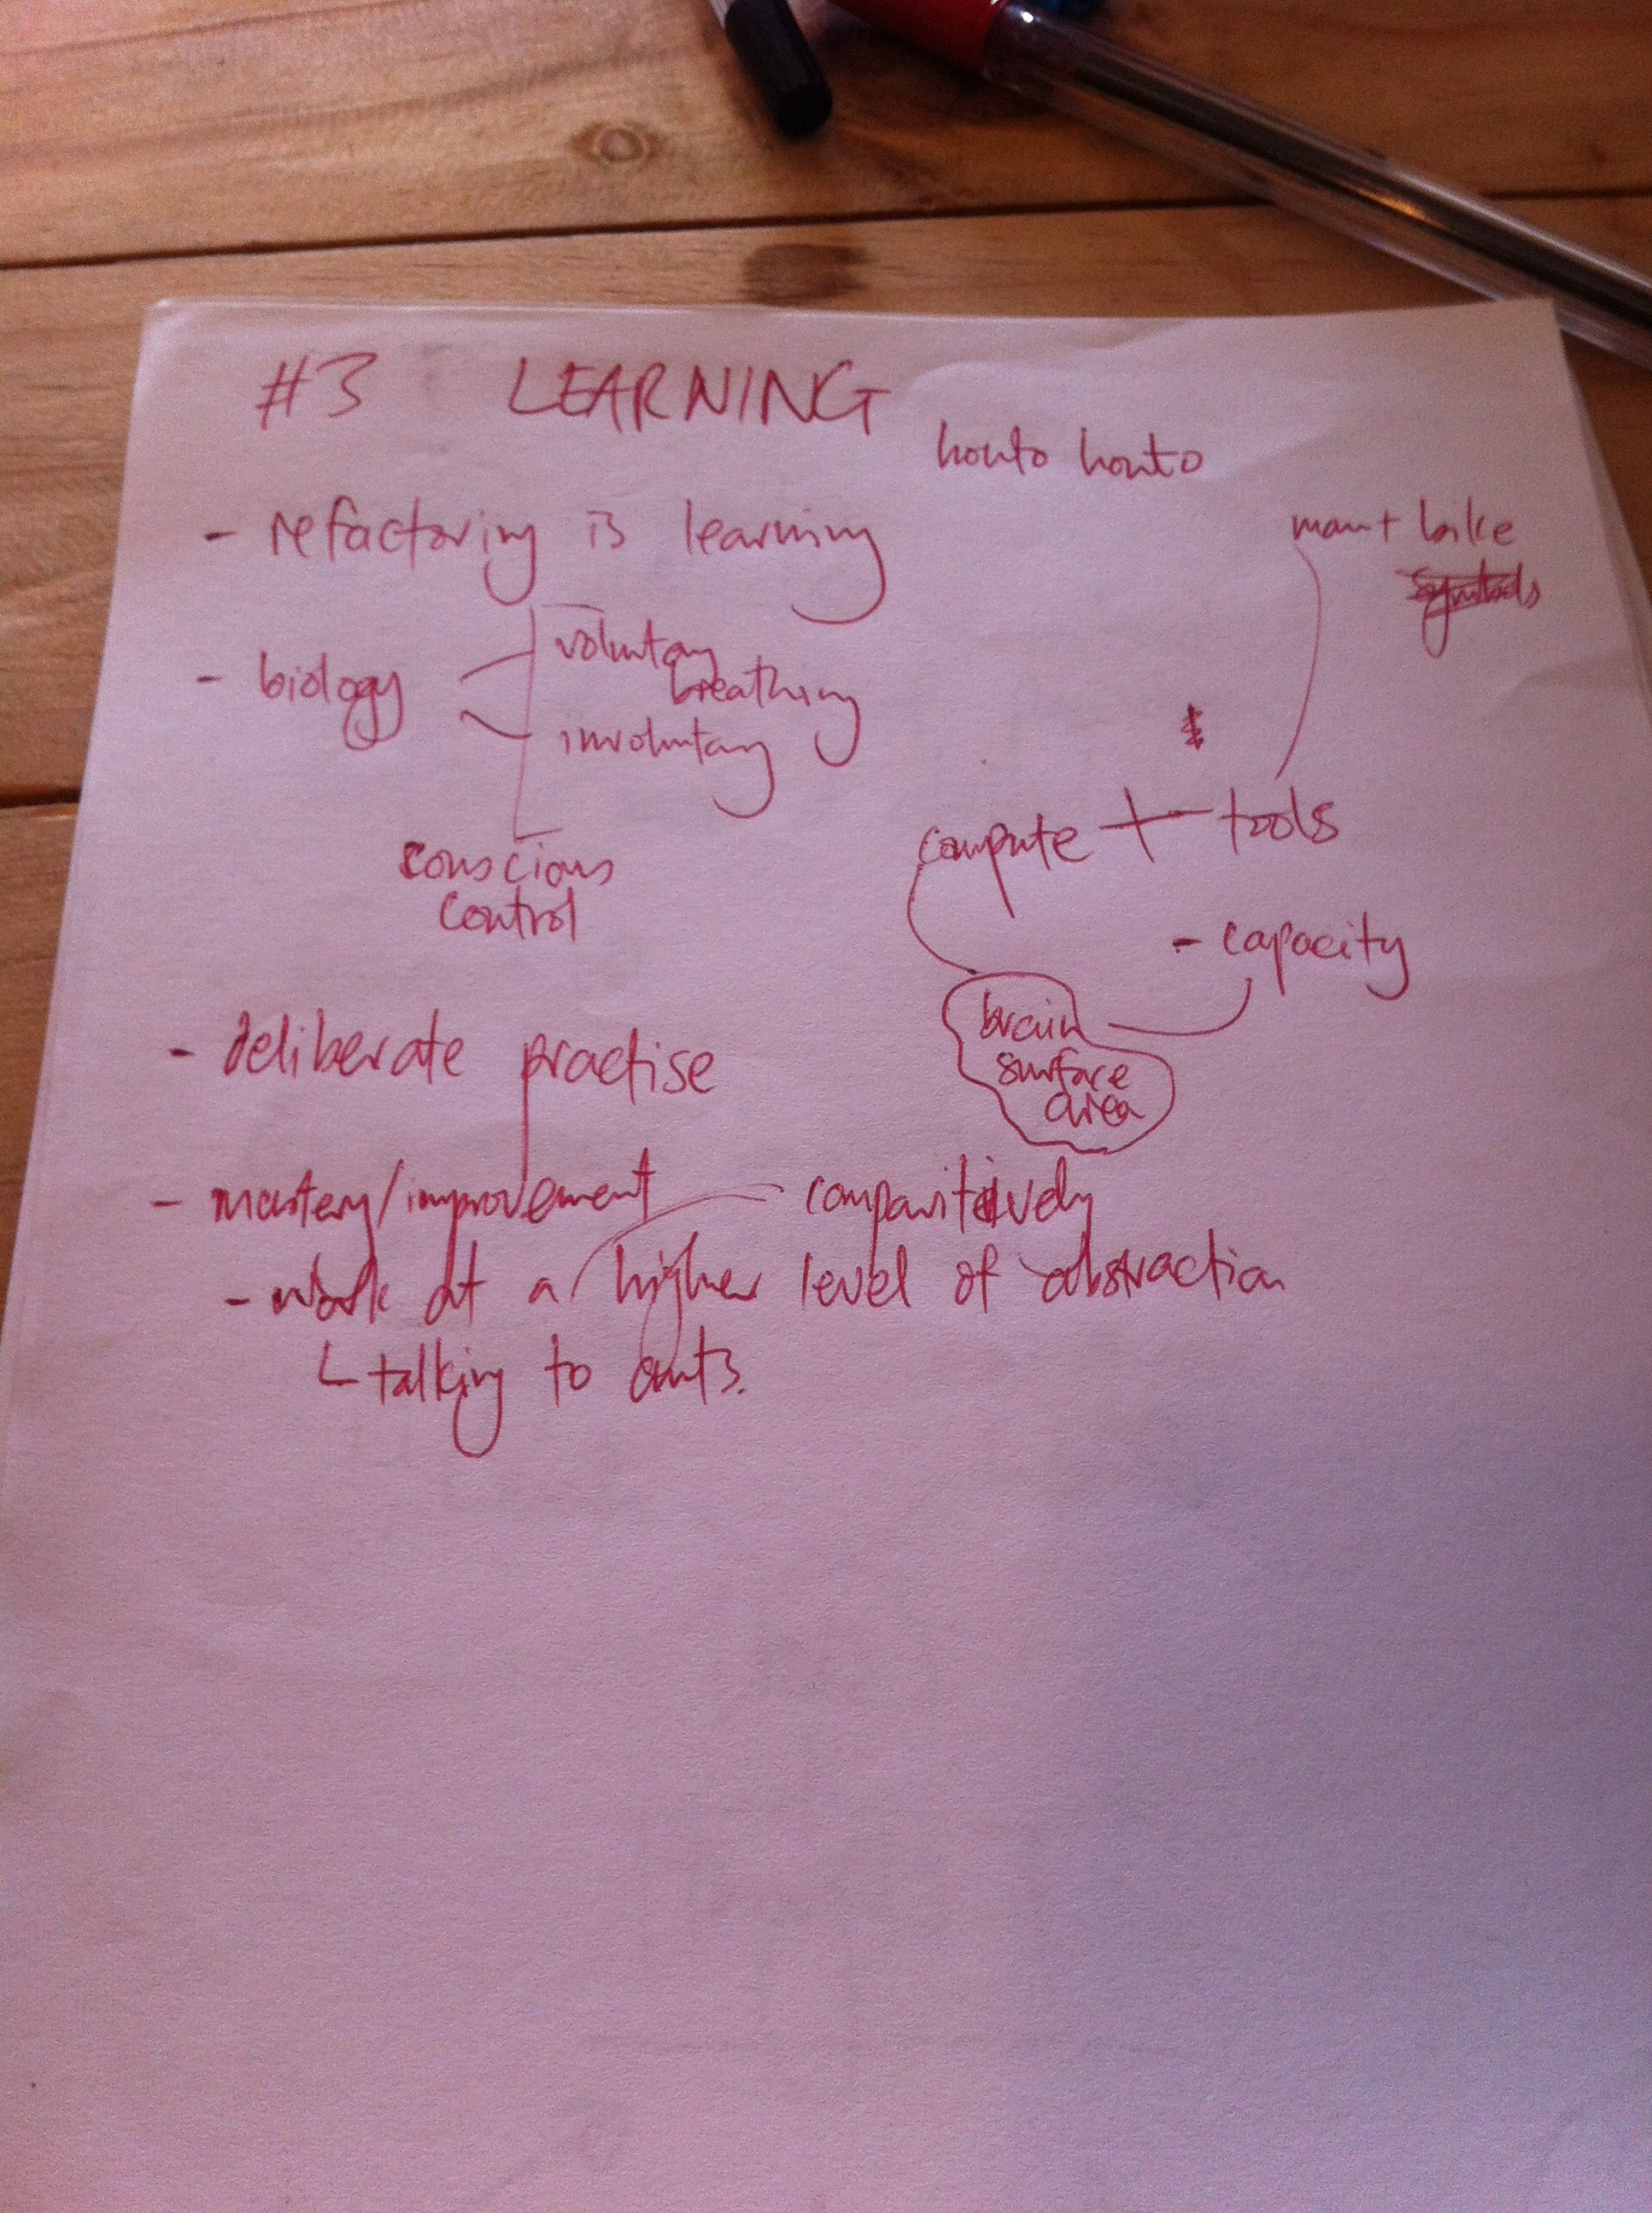 #3 LEARNING
howto howto
- refactoring is learning
man + bike
- biology
volutay
breathing
involutay
conscious
control
compute + tools
- capacity
brain
surface
area
- deliberate practise
- mastery/improvement
comparitively
- work at a higher level of abstraction
talking to ants.